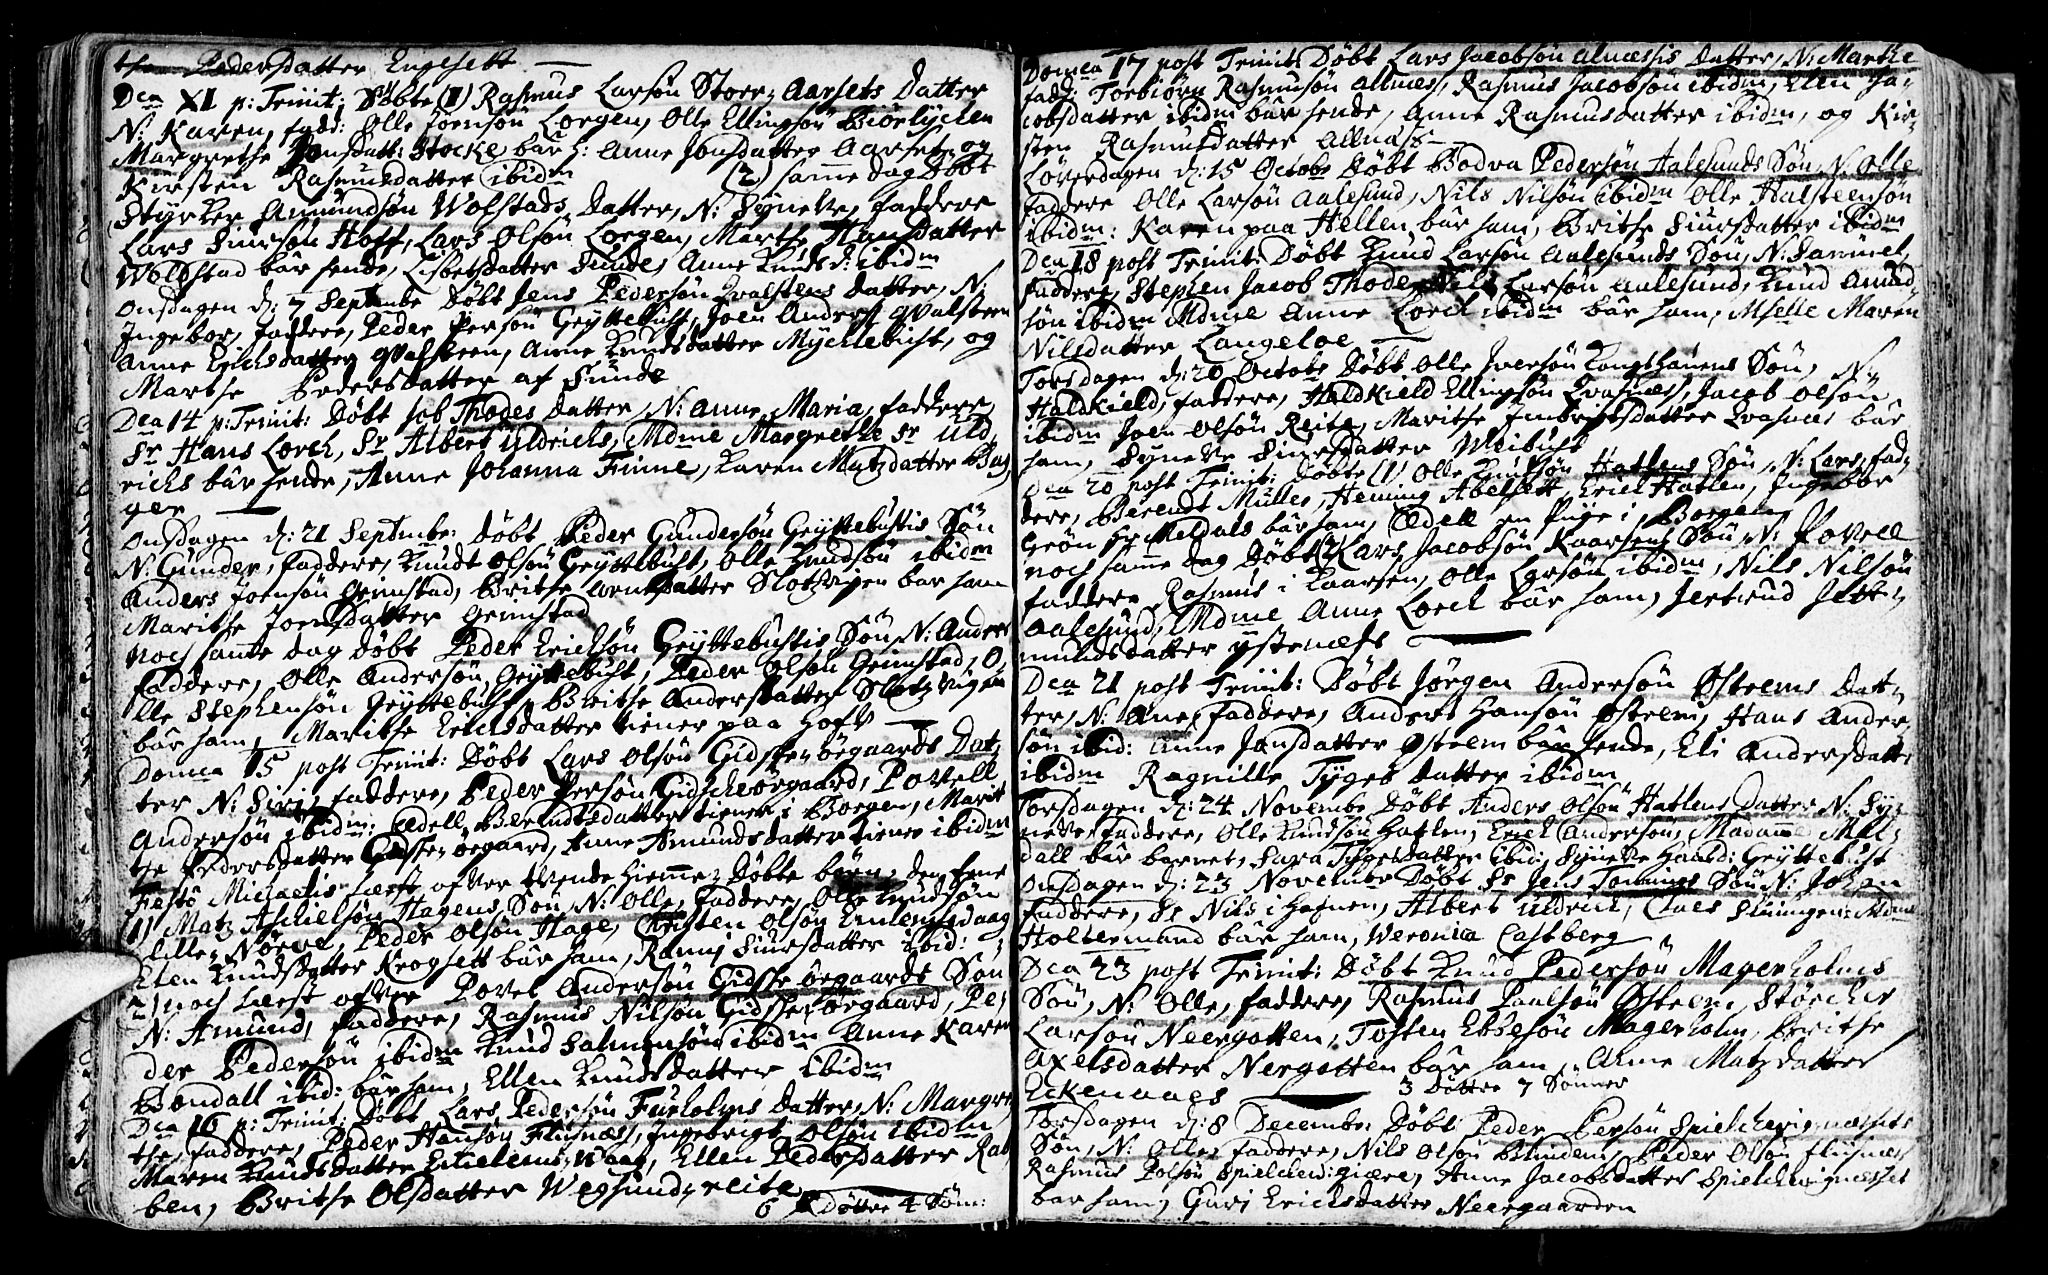 Pedersdatter Engesett
Dca XI p: Trinit: Døbte (1) Rasmus Larsøn Storr-Aarsets Datter
N: Karen, fadd: Olle Joensøn Lorgen, Olle Ellingsøn Biørlychen
Margrethe Jonsdatt: Stocke, bar h: Anne Jonsdatter Aarset, og
Kirsten Rasmusdatter ibidm (2) samme dag Døbt
Styrker Amundsøn Wolstads Datter, N: Synneve, faddere
Lars Siursøn Hoff, Lars Olsøn Lorgen, Marthe Hansdatter
Wolstad bar hende, Lisbetsdatter Sunde, Anne Knuds d: ibidm
Onsdagen d: 7 Septembr Døbt Jens Pedersøn Qvalsteens Datter, N:
Ingebor, faddere, Peder Persøn Gryttebust, Joen Anders: Qvalsteen
Anne Erichsdatter Qvalsteen, Anne Knudsdatter Mychlebust, og
Marthe Pedersdatter af Sunde
Dca 14 p: Trinit: Døbt Job Thodes Datter, N: Anne Maria, faddere,
Sr Hans Lorch, Sr Albert Uldrichs, Mdme Margrethe Sr Uld,
richs bar hende, Anne Johanna Finne, Karen Matzdatter Bur,
ger
Onsdagen d: 21 Septembr: Døbt Peder Gundersøn Gryttebustis Søn
N: Gunder, faddere, Knudt Olsøn Gryttebust, Olle Knudsøn ibidm
Anders Joensøn Grimstad, Brithe Arentsdatter Slotzvigen bar ham
Marithe Joensdatter Grimstad
Noch samme dag Døbt Peder Erichsøn Gryttebustis Søn, N: Anders
faddere, Olle Andersøn Gryttebust, Peder Olsøn Grimstad, O,
lle Stephensøn Gryttebust, Brithe Andersdatter Slotzvigen
bar ham, Marithe Erichsdatter tiener paa Hoff
Domca 15 post Trinit: Døbt Lars Olsøn Gidske-ørgaards Dat,
ter N: Siri, faddere, Peder Persøn Gidscheørgaard, Povell
Andersøn ibidm: Edell Berendtsdatter tiener i Borgen, Marit
he Pedersdatter Gidske-ørgaard, Anne Amundsdatter tiener ibidm
Festo Michaelis læst ofver tvende hiemme-Døbte børn, den eene
(1) Matz Aschielsøn Hagens Søn, N: Olle, faddere, Olle Knudsøn
lille-Nørve, Peder Olsøn Hage, Christen Olsøn Emlemsdaag
Elen Knudsdatter Krogsett bar ham, Ranni Siursdatter ibid:
2) noch læst ofver Povel Andersøn Gidske ørgaards Søn
N: Amund, faddere, Rasmus Nilsøn Gidske-ørgaard, Pe,
der Pedersøn ibidm Knud Salmonsøn ibidm Anne Karen
Bondall ibid: bar ham, Ellen Knudsdatter ibidm
Dca 16 p: Trinit: Døbt Lars Pedersøn Furholms Datter, N: Margre,
the, faddere, Peder Hansøn Flisnæs, Ingebrigt Olsøn ibidm
Maren Knudsdatter Emlems-Vaag, Ellen Pedersdatter Rab,
ben, Brithe Olsdatter Wegsund-reite
6 Døttre 4 Sønn:
Domca 17 post Trinit: Døbt Lars Jacobsøn Alnæssis Datter, N: Marthe
fadd: Torbiørn Rasmusøn Allnæs, Rasmus Jacobsøn ibidm, Elen Ja,
cobsdatter ibidm bar hende, Anne Rasmusdatter ibidm, og Kir,
sten Rasmusdatter Allnæs
Løverdagen d: 15 Octobr Døbt Bodva Pedersøn Aalesunds Søn, N: Olle
faddere Olle Larsøn Aalesund, Nils Nilsøn ibidm Olle Halsteensøn
ibidm: Karen paa Hellen bar ham, Brithe Siursdatter ibidm
Dca 18 post Trinit: Døbt Knud Larsøn Aalesunds Søn, N: Sammel,
faddere, Stephen Jacob Thode, Nils Larsøn Aalesund, Knud Amund
søn ibidm Mdme Anne Lorch ibidm bar ham, Mselle Maren
Nilsdatter Langeloe
Torsdagen d: 20 Octobr Døbt Olle Iversøn Langthunens Søn, N:
Haldkield, faddere, Haldkield Ellingsøn Qvasnæs, Jacob Olsøn
ibidm Joen Olsøn Reite, Marithe Ingebrigtsdatter Qvasnæs bar
ham, Synneve Siursdatter Weibust
Dca 20 post Trinit: Døbte (1) Olle Knudsøn Hatlens Søn, N: Lars, fad,
dere, Berendt Müller, Heming Abelsett, Erich Hatlen, Ingebor
Grøn Hr Meldals bar ham, Edell en Pige i Borgen
Noch samme dag Døbt (2) Lars Jacobsøn Kaarsens Søn, N: Povell
faddere Rasmus i Kaarsen, Olle Larsøn ibidm, Nils Nilsøn
Aalesund, Mdme Anne Lorch bar ham, Jertrud Jett-
mundsdatter ystenæs
Dca 21 post Trinit: Døbt Jørgen Andersøn Østrems Datt,
ter, N: Ane, faddere, Anders Hansøn Østrem, Hans Ander,
søn ibid: Anne Jonsdatter Østrem bar hende, Eli Andersdatte
ibidm Ragnille Tygesdatter ibidm
Torsdagen d: 24 Novembr Døbt Anders Olsøn Hatlens Datter N: Sy,
neve, faddere, Olle Knudsøn Hatlen, Erich Andersøn, Madamme Mel,
dall bar barnet, Sara Tygesdatter ibid: Synneve Harald: Gryttebust
Onsdagen d: 23 November Døbt Sr Jens Tønnings Søn, N: Johan
faddere, Sr Nils i Hafnen, Albert Uldrich, Claes Sluingen: Mdme
Holtermand bar ham, Weronica Castberg
Dca 23 post Trinit: Døbt Knud Pedersøn Magerholms
Søn, N: Olle, faddere, Rasmus Paalsøn Østrem, Størcher
Larsøn Neergotten, Tosten Ebbesøn Magerholm, Brithe
Axelsdatter Nergotten bar ham, Anne Matzdatter
Eckenaaes 3 Døttre 7 Sønner
Torsdagen d: 8 Decembr: Døbt Peder Persøn Spielchevignæssets
Søn, N: Olle, faddere, Nils Olsøn Blindem, Peder Olsøn flisnæs
Rasmus Polsøn Spielchevigiære, Anne Jacobsdatter Spielchevignesset
bar ham, Guri Erichsdatter Neergaarden